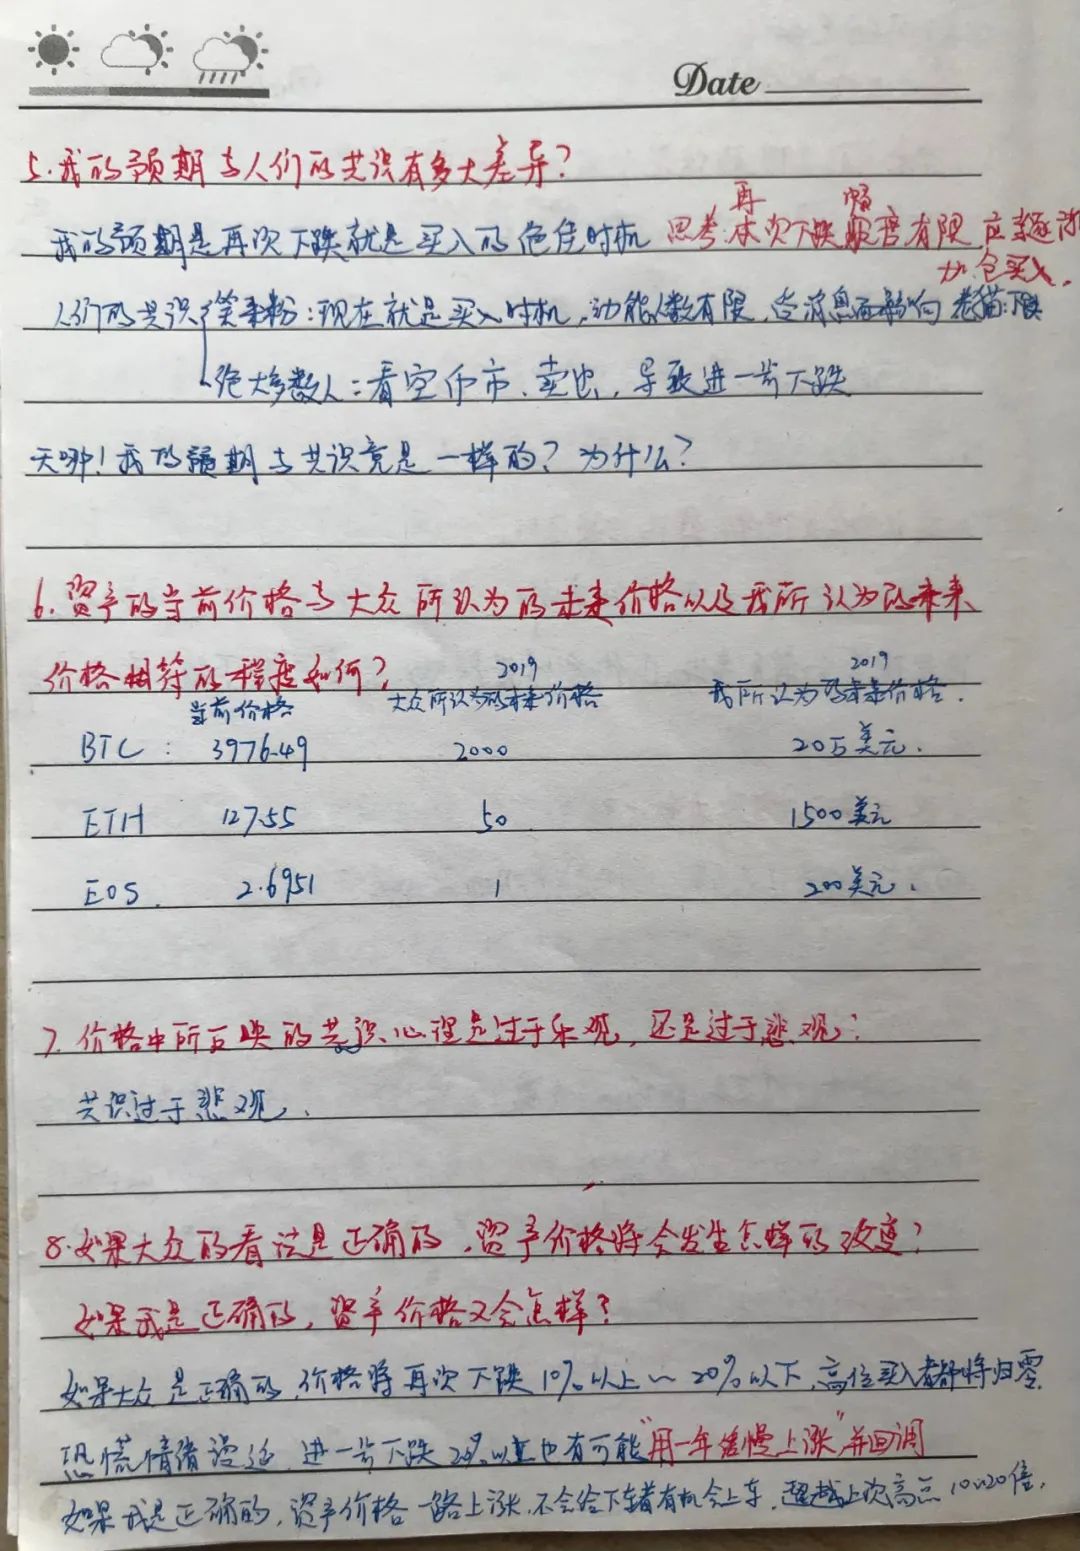 Date
5.我的预期与人们的共识有多大差异?
再 幅
我的预期是再次下跌就是买入的绝佳时机 思考:本次下跌 有限 应逐渐
加仓买入.
人们的共识 笑来粉:现在就是买入时机,动能人数有限, 消息面影响 下跌
绝大多数人:看空币市、卖出,导致进一步下跌
天哪!我的预期与共识竟是一样的?为什么?
6.资产的当前价格与大众所认为的未来价格以及我所认为的未来
价格相符的程度如何?
当前价格 2019大众所认为的未来价格 2019我所认为的未来价格.
BTC: 3976.49 2000 20万美元.
ETH 127.55 50 1500美元
EOS. 2.6951 1 200美元.
7.价格中所反映的共识心理是过于乐观,还是过于悲观?
共识过于悲观.
8.如果大众的看法是正确的,资产价格将会发生怎样的改变?
如果我是正确的,资产价格又会怎样?
如果大众是正确的,价格将再次下跌10%以上~20%以下,高位买入者都将归零
恐慌情绪漫延 进一步下跌20%以上也有可能"用一年缓慢上涨"并回调
如果我是正确的,资产价格一路上涨,不会给下车者有机会上车,超越上次高点10~20倍.